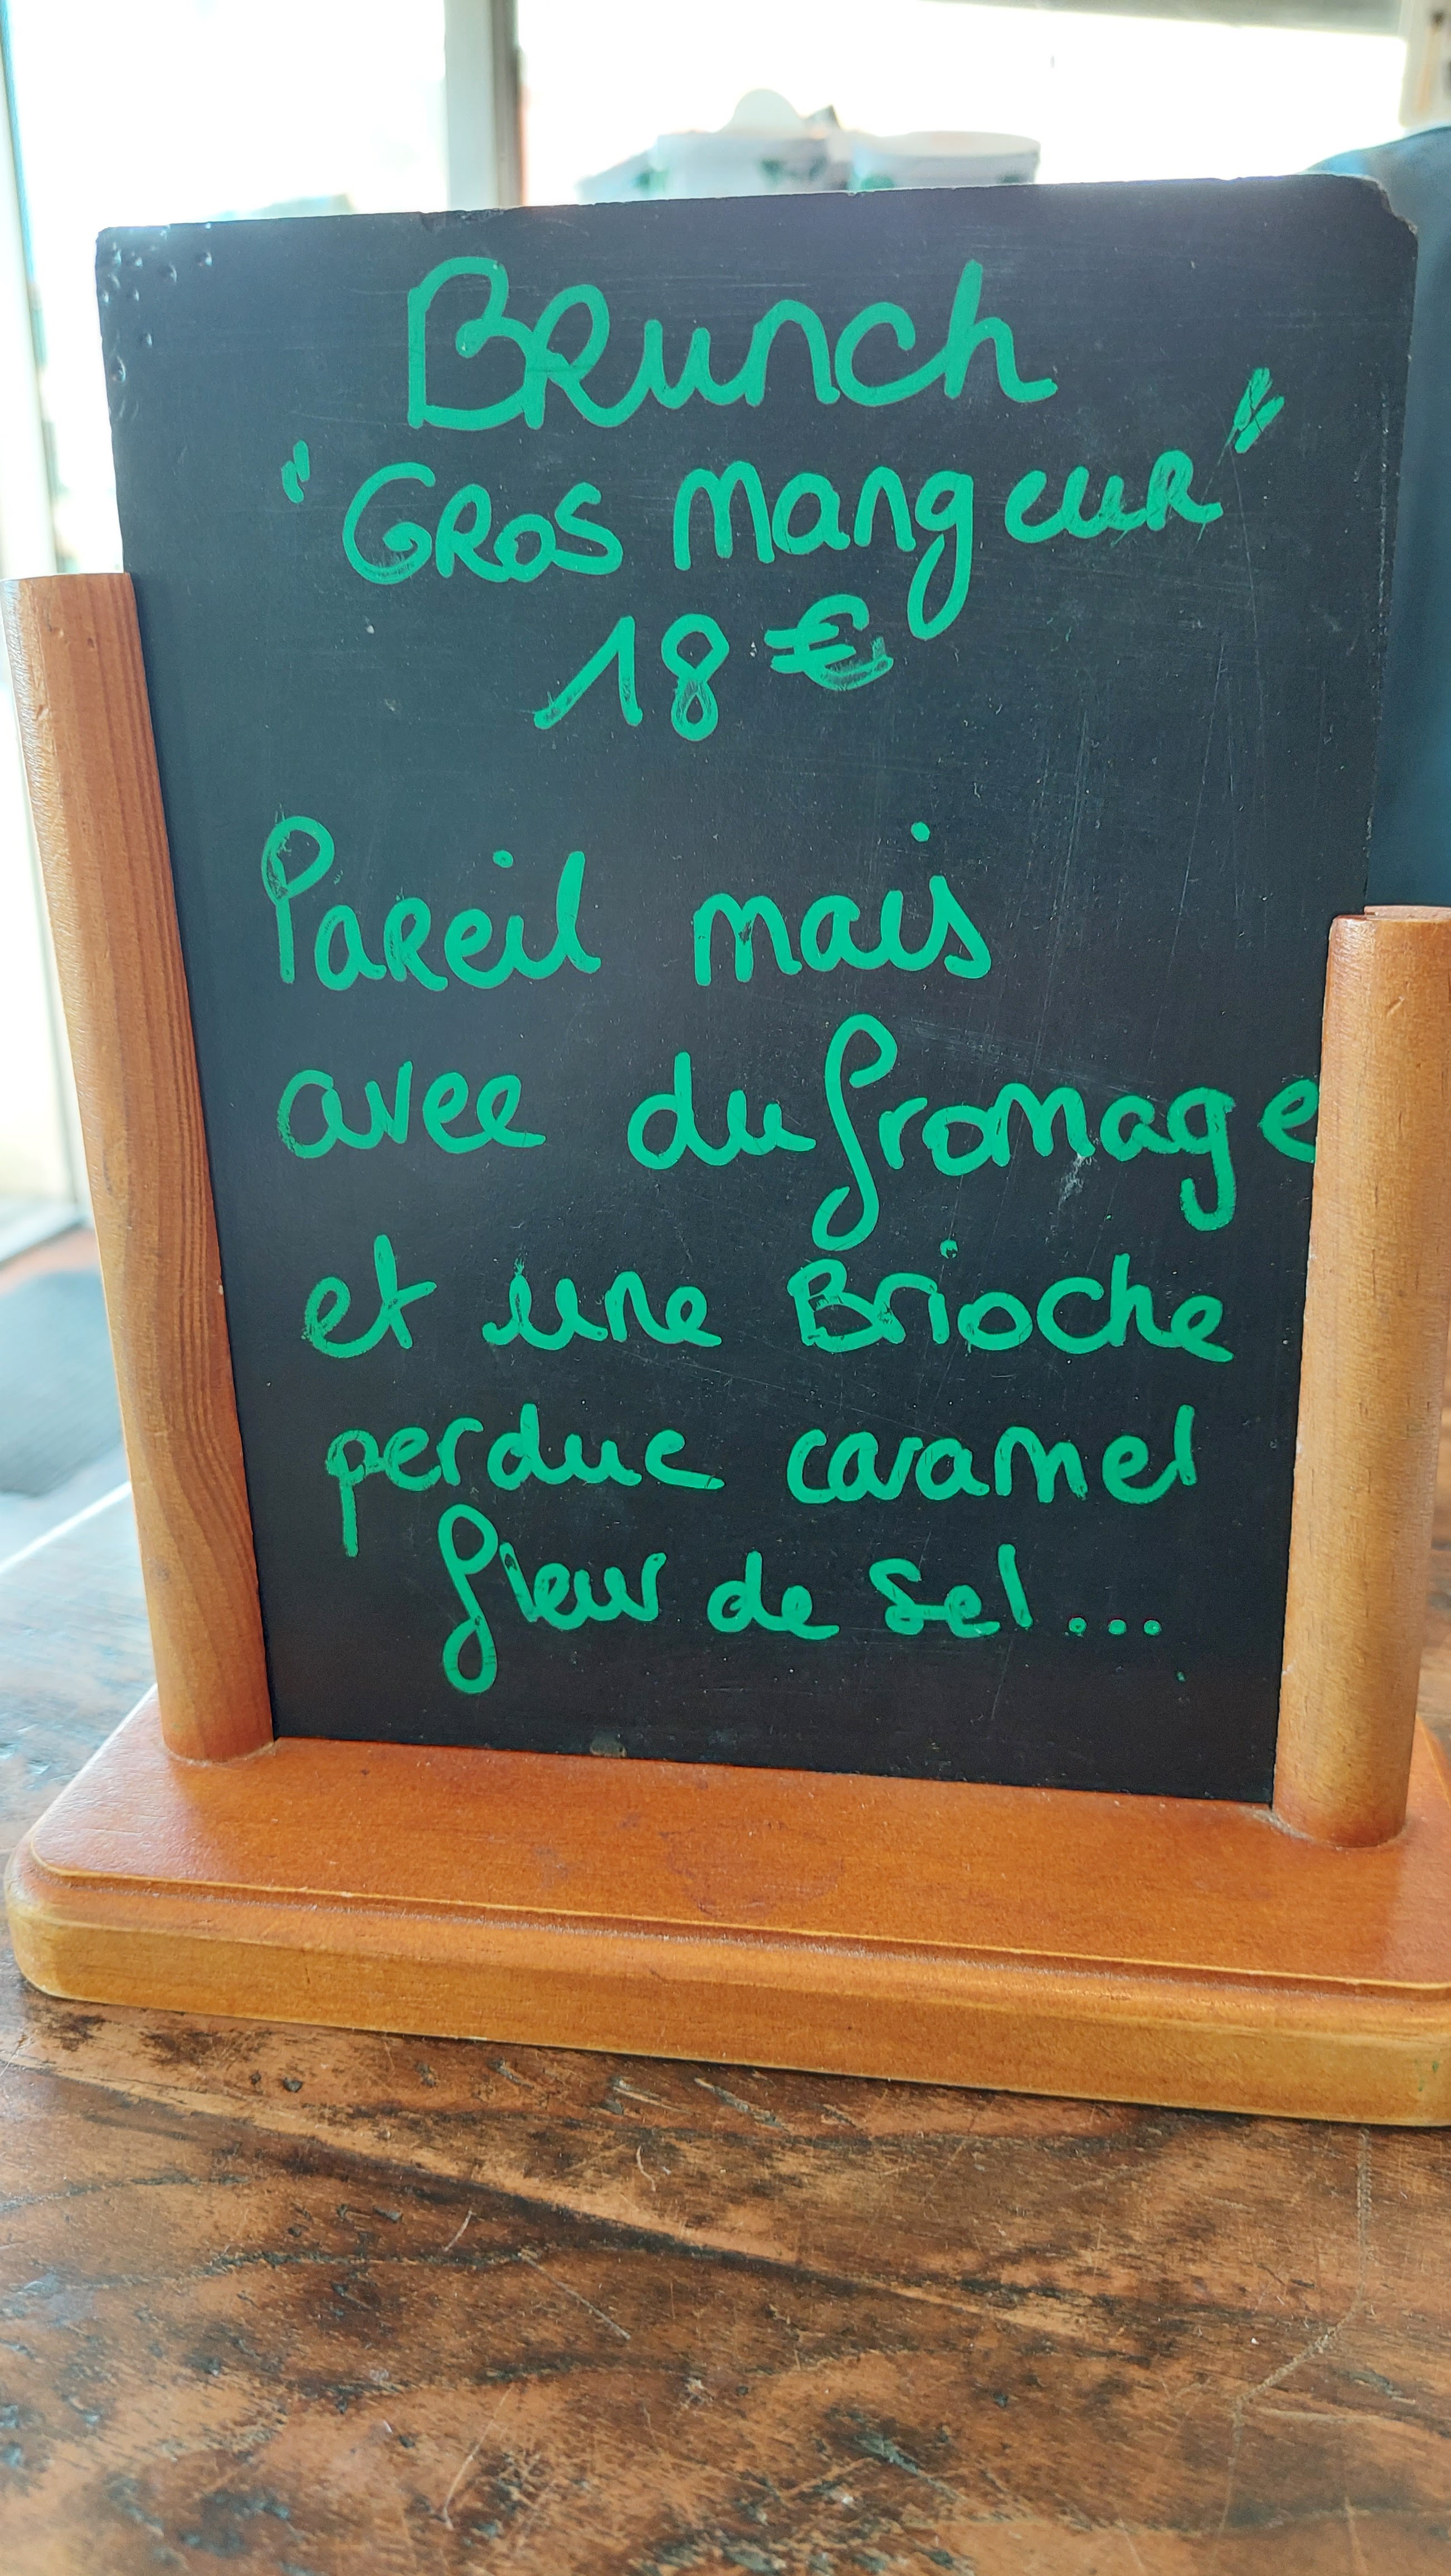 Brunch
"Gros mangeur"
18 €
Pareil mais
avec du fromage
et une Brioche
perdue caramel
fleur de sel...